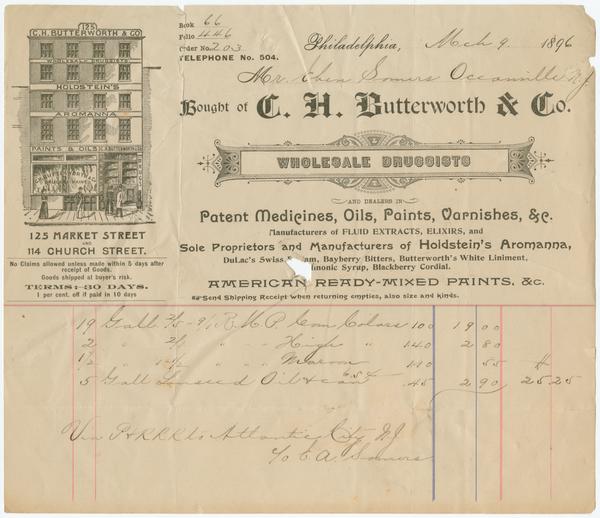 125
C. H. BUTTERWORTH & CO
WHOLESALE DRUGGISTS
HOLDSTEIN'S
AROMANNA
PAINTS & OILS
125 MARKET STREET
AND
114 CHURCH STREET.
No Claims allowed unless made within 5 days after
receipt of Goods.
Goods shipped at buyer's risk.
TERMS:-30 DAYS.
1 per cent. off if paid in 10 days
Book 66
Folio 446
Order No. 203
TELEPHONE No. 504.
Philadelphia, Mch 9 1896
Mr. Eben Somers Oceanville NJ
Bought of C. H. Butterworth & Co.
WHOLESALE DRUGGISTS
AND DEALERS IN
Patent Medicines, Oils, Paints, Varnishes, &c.
Manufacturers of FLUID EXTRACTS, ELIXIRS, and
Sole Proprietors and Manufacturers of Holdstein's Aromanna,
DuLac's Swiss Bayberry Bitters, Butterworth's White Liniment,
Syrup, Blackberry Cordial.
AMERICAN READY-MIXED PAINTS, &c.
Send Shipping Receipt when returning empties, also size and kinds.
19 Galls R. M. P. Com Colors 100 19 00
2 " 2/1 " " High " 140 2 80
1½ " " " Maroon 55
5 Gall Linseed Oil & can 45 2 90 25 25
Via P & RRR to Atlantic City NJ
c/o E. A. Somers